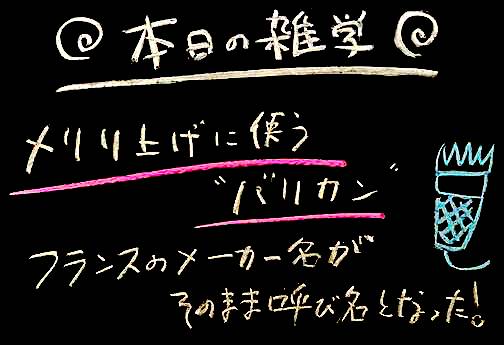 本日の雑学
メリリ上げに使う
"バリカン"
フランスのメーカー名が
そのまま呼び名となった!